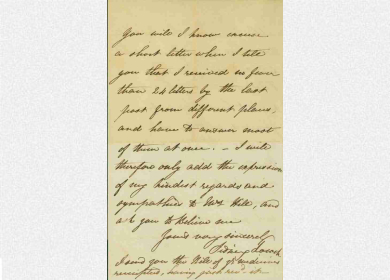 You will I know excuse
a short letter when I tell
you that I received no fewer
than 24 letters by the last
post from different places,
and have to answer most
of them at once. — I will
therefore only add the expression
of my kindest regards and
sympathies to Mrs Hill, and
ask you to believe me
Yours very sincerely
Sidney
I send you the Bill of
receipted, having good